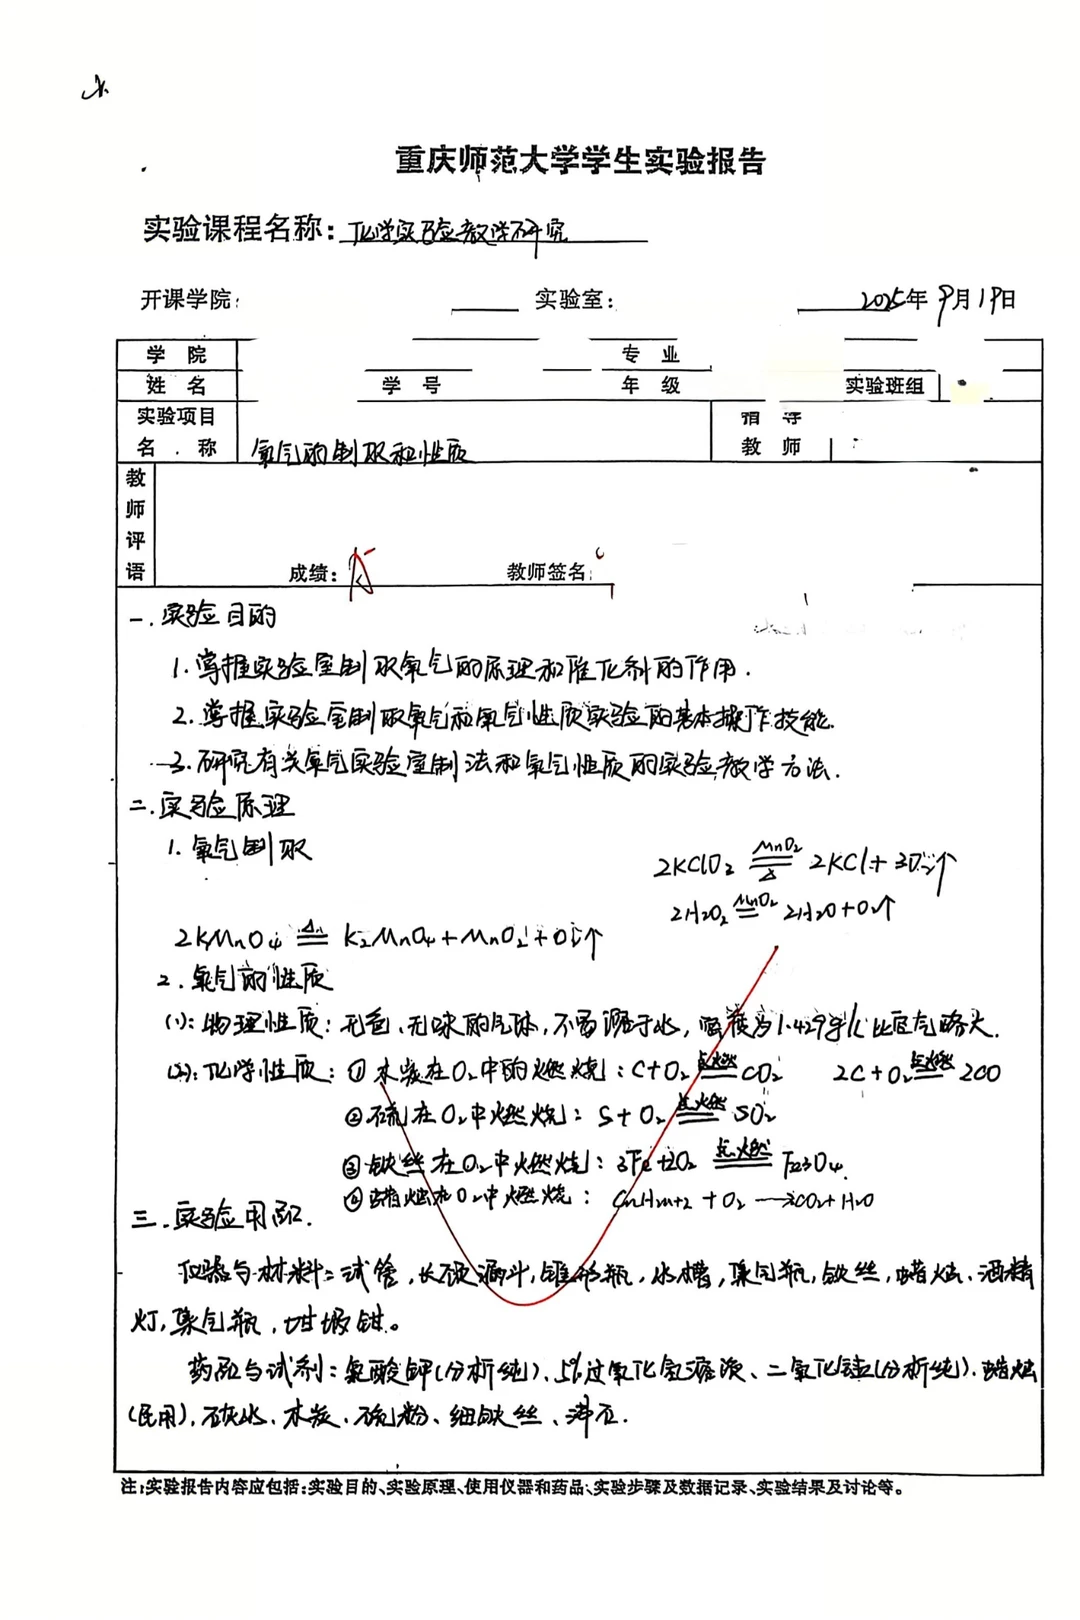 重庆师范大学学生实验报告
实验课程名称:化学实验教学研究
开课学院: 实验室: 2025年9月19日
学 院 专 业
姓 名 学 号 年 级 实验班组
实验项目 指 导
名 称 氧气的制取和性质 教 师
教
师
评
语 成绩:A 教师签名:
一.实验目的
1.掌握实验室制取氧气的原理和催化剂的作用.
2.掌握实验室制取氧气和氧气性质实验的基本操作技能.
3.研究有关氧气实验室制法和氧气性质的实验教学方法.
二.实验原理
1.氧气制取
2KClO₂ MnO₂ ══ △ 2KCl+3O₂↑
2H₂O₂ MnO₂ ══ 2H₂O+O₂↑
2KMnO₄ △ ══ K₂MnO₄+MnO₂+O₂↑
2.氧气的性质
(1):物理性质:无色、无味的气体,不易溶于水,密度为1.429g/L比空气略大.
(2):化学性质:①木炭在O₂中的燃烧:C+O₂ 点燃 ══ CO₂ 2C+O₂ 点燃 ══ 2CO
②硫在O₂中燃烧:S+O₂ 点燃 ══ SO₂
③铁丝在O₂中燃烧:3Fe+2O₂ 点燃 ══ Fe3O4.
④蜡烛在O₂中燃烧:CnH2n+2+O₂—→CO₂+H₂O
三.实验用品.
仪器与材料:试管,长颈漏斗,锥形瓶,水槽,集气瓶,铁丝,蜡烛、酒精
灯,集气瓶,坩埚钳。
药品与试剂:氯酸钾(分析纯)、5%过氧化氢溶液、二氧化锰(分析纯).蜡烛
(民用),石灰水、木炭、硫粉、细铁丝、沸石.
注:实验报告内容应包括:实验目的、实验原理、使用仪器和药品、实验步骤及数据记录、实验结果及讨论等。